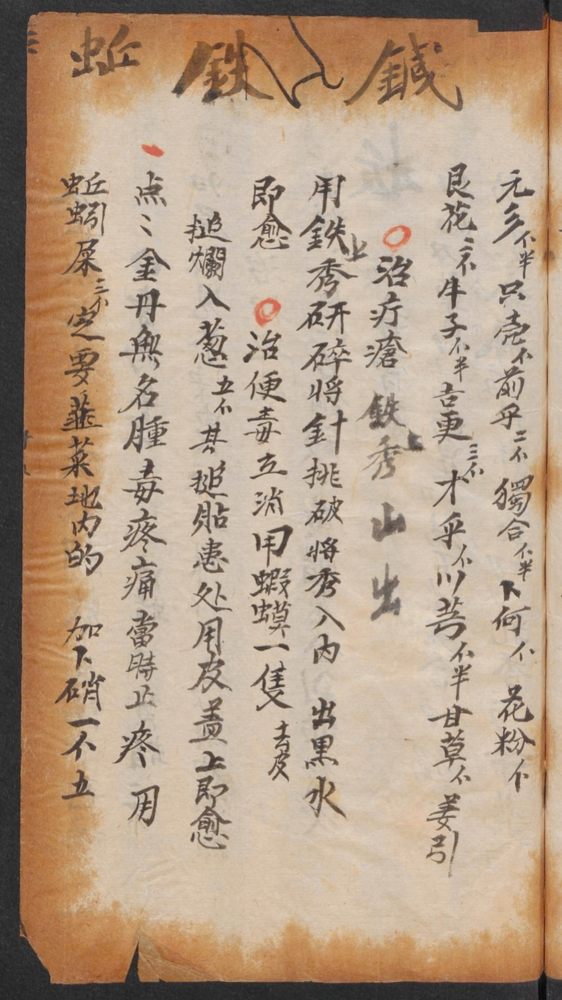 鍼 鉄 蚯
元彡不半只壳不前乎二不獨合不半下何不花粉不
艮花三不牛子不半吉更三不才乎不川芎不半甘草不姜引
治疔瘡 鉄上秀山出
用鉄上秀研碎将針挑破将秀入内 出黑水
即愈 治便毒立消用蝦蟆一隻去皮
搥爛入葱五不共搥貼患处用皮盖上即愈
点〻金丹無名腫毒疼痛當時止疼用
蚯蚓屎三不 要韮菜地内的 加下硝一不五